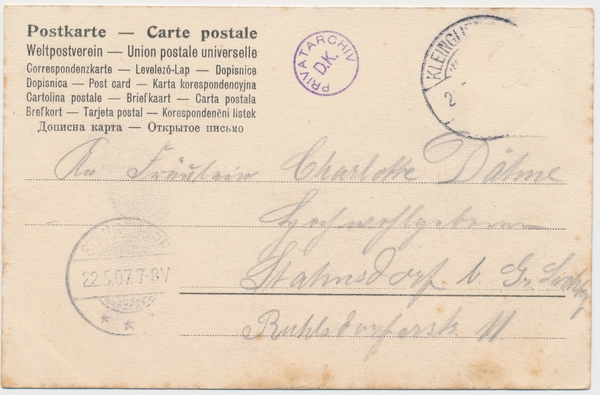 Postkarte — Carte postale
Weltpostverein — Union postale universelle
Correspondenzkarte — Levelező-Lap — Dopisnice
Dopisnica — Post card — Karta korespondencyjna
Cartolina postale — Briefkaart — Carta postala
Brefkort — Tarjeta postal — Korespondenční listek
Дописна карта — Открытое письмо
PRIVATARCHIV
D.K.
KLEINGL
2
An Fräulein Charlotte Dähne
Hochwohlgeboren
22.5.07.7-8V
Stahnsdorf b. Gr.
Ruhlsdorferstr. 11